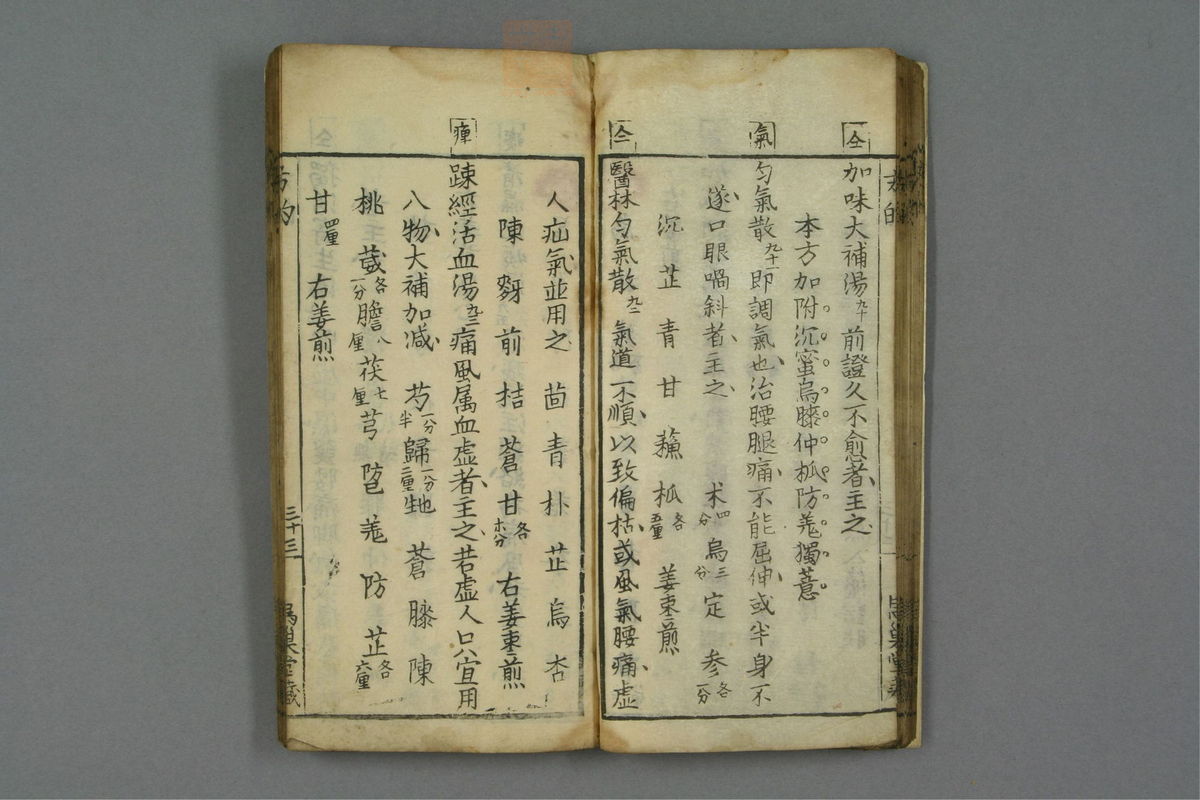 仝
加味大補湯九十前證久不愈者主之
本方加附沉蜜烏膝仲抓防羗獨薏
氣
勻氣散九十一即調氣也治腰腿痛不能屈伸或半身不
遂口眼喎斜者主之 术四分烏三分定參各一分
沉芷青甘蘓抓各五厘姜枣煎
仝
醫林勻氣散九二氣道不順以致偏枯或風氣腰痛虛
人疝氣並用之 茴青朴芷烏杏
陳 前桔蒼甘各六分右姜枣煎
痺
踈經活血湯九三痛風属血虚者主之若虚人只宜用
八物大補加减 芍一分半歸一分二厘 蒼膝陳
桃葳各一分膽八厘茯七厘芎 羗防芷各六厘
甘四厘 右姜煎
方的
三十三